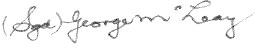 (Sgd) George McLeay